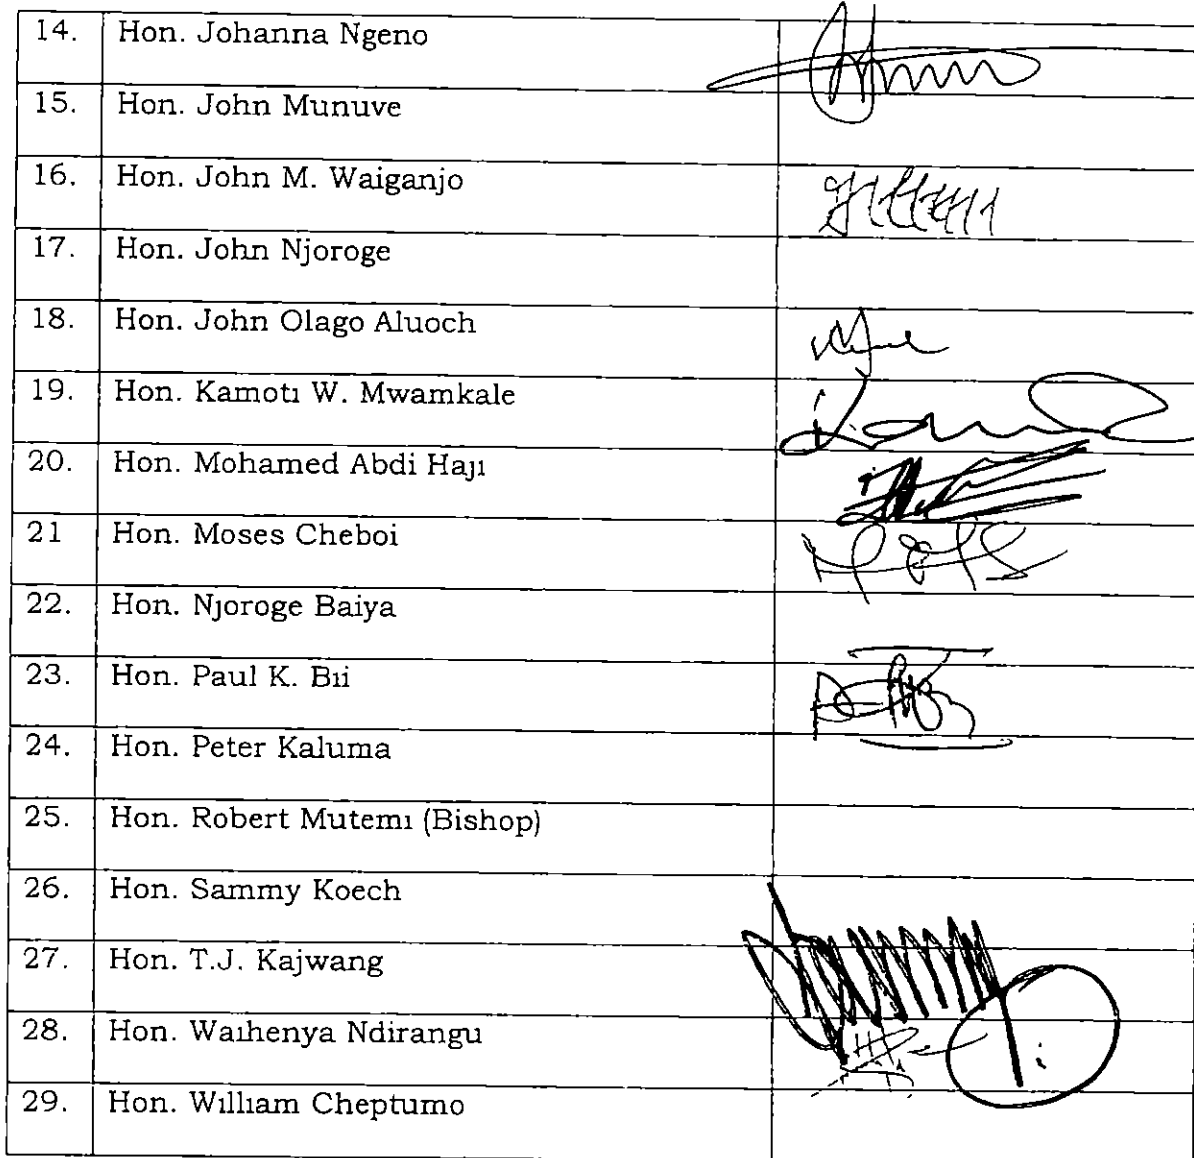 14. Hon. Johanna Ngeno
15. Hon. John Munuve
16. Hon. John M. Waiganjo
17. Hon. John Njoroge
18. Hon. John Olago Aluoch
19. Hon. Kamoti W. Mwamkale
20. Hon. Mohamed Abdi Haji
21 Hon. Moses Cheboi
22. Hon. Njoroge Baiya
23. Hon. Paul K. Bii
24. Hon. Peter Kaluma
25. Hon. Robert Mutemi (Bishop)
26. Hon. Sammy Koech
27. Hon. T.J. Kajwang
28. Hon. Waihenya Ndirangu
29. Hon. William Cheptumo